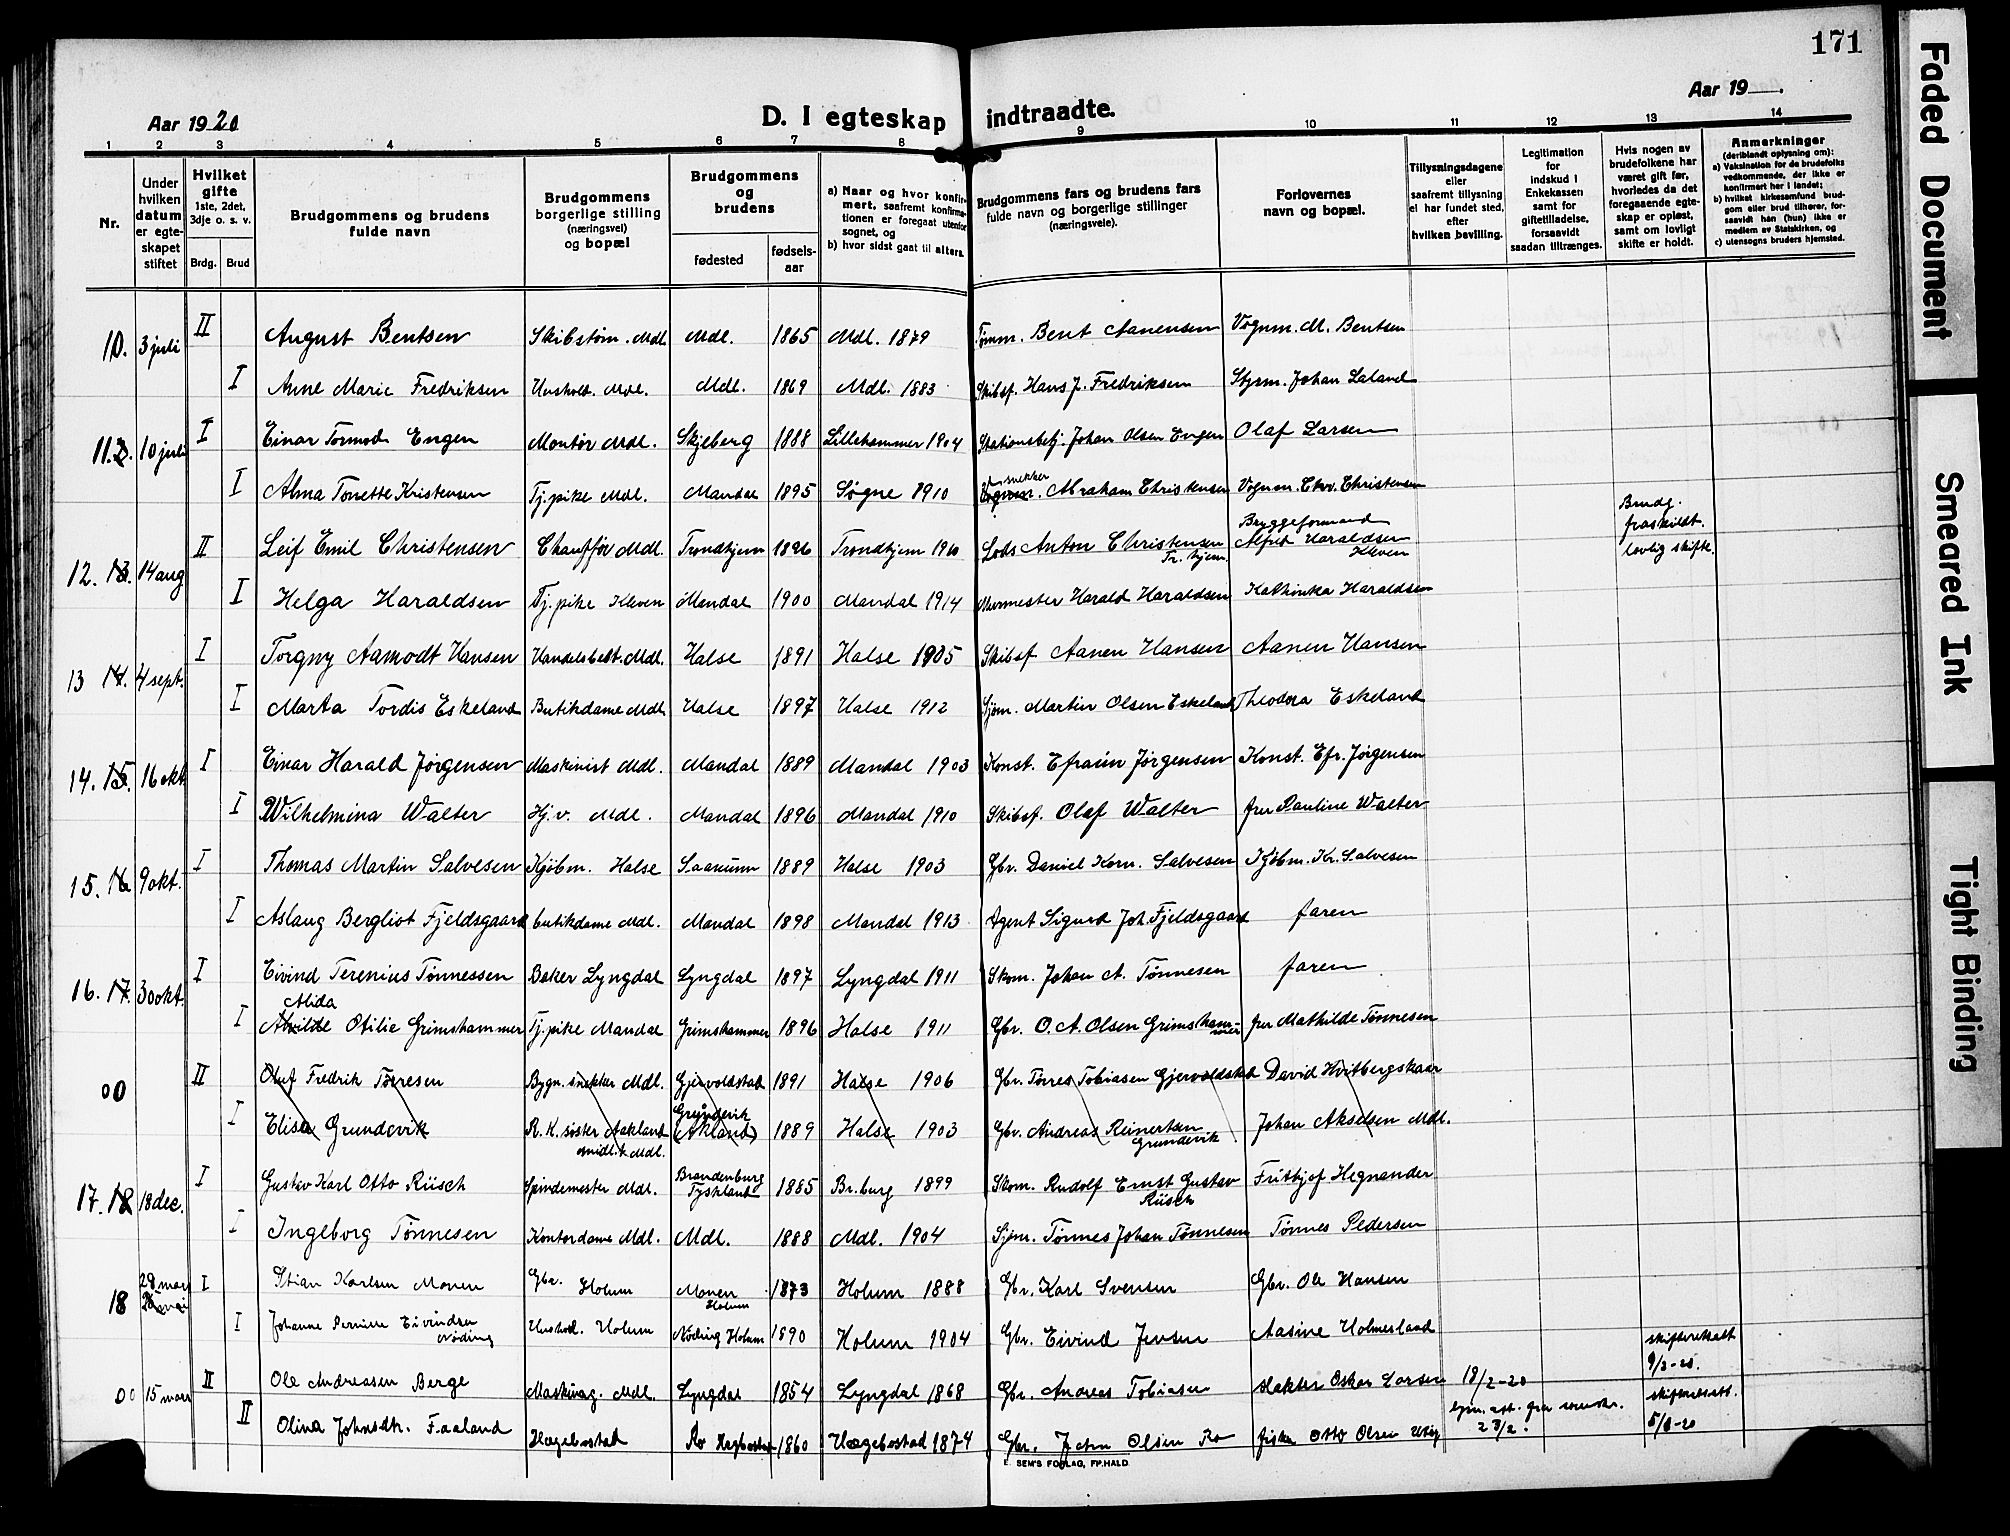 171
Aar 1920
D. I egteskap indtraadte.
Aar 19
1 2 3 4 5 6 7 8 9 10 11 12 13 14
Nr.
Under hvilken datum er egteskapet stiftet
Hvilket gifte 1ste, 2det, 3dje o. s. v.
Brdg. Brud
Brudgommens og brudens fulde navn
Brudgommens borgerlige stilling (næringsvei) og bopæl
Brudgommens og brudens
fødested fødselsaar
a) Naar og hvor konfirmert, saafremt konfirmationen er foregaat utenfor sognet, og
b) hvor sidst gaat til alters.
Brudgommens fars og brudens fars fulde navn og borgerlige stillinger (næringsveie).
Forlovernes navn og bopæl.
Tillysningsdagene eller saafremt tillysning ei har fundet sted, efter hvilken bevilling.
Legitimation for indskud i Enkekassen samt for giftetilladelse, forsaavidt saadan tiltrænges.
Hvis nogen av brudefolkene har været gift før, hvorledes da det foregaaende egteskap er opløst, samt om lovligt skifte er holdt.
Anmerkninger (deriblandt oplysning om):
a) Vaksination for de brudefolks vedkommende, der ikke er konfirmert her i landet;
b) hvilket kirkesamfund brudgom eller brud tilhører, forsaavidt han (hun) ikke er medlem av Statskirken, og
c) utensogns bruders hjemsted.
10. 3 juli II August Bentsen Skibstøm. Mdl. Mdl. 1865 Mdl. 1879 Tømm. Bent Aanensen Vognm. M. Bentsen
I Anne Marie Fredriksen Hushold. Mdl. Mdl. 1869 Mdl. 1883 Skibsf. Hans J. Fredriksen Styrm. Johan Laland
11. 10 juli I Einar Tormod Engen Montør Mdl. Skjeberg 1888 Lillehammer 1904 Stationsbetj. Johan Olsen Engen Olaf Larsen
I Alma Tonette Kristensen Tj.pike Mdl. Mandal 1895 Søgne 1910 snekker Abraham Christensen Vognm. Chr. Christensen
12. 13. 14 aug II Leif Emil Christensen Chauffør Mdl. Trondhjem 1896 Trondhjem 1910 Lods Anton Christensen Tr.hjem Bryggeformand Alfred Haraldsen Kleven Brudg. fraskildt. lovlig skifte.
I Helga Haraldsen Tj.pike Kleven Mandal 1900 Mandal 1914 Murmester Harald Haraldsen Kathinka Haraldsen
13 14. 4 sept. I Torgny Aamodt Hansen Handelsbest. Mdl. Halse 1891 Halse 1905 Skibsf Aanen Hansen Aanen Hansen
I Marta Tordis Eskeland Butikdame Mdl. Halse 1897 Halse 1912 Sjøm. Martin Olsen Eskeland Theodora Eskeland
14. 15. 16 okt. I Einar Harald Jørgensen Maskinist Mdl. Mandal 1889 Mandal 1903 Konst. Efraim Jørgensen Konst. Efr. Jørgensen
I Wilhelmina Walter Hj.v. Mdl. Mandal 1896 Mandal 1910 Skibsf. Olaf Walter fru Pauline Walter
15. 16 9 okt. I Thomas Martin Salvesen Kjøbm. Halse Saanum 1889 Halse 1903 Gbr. Daniel Korn. Salvesen Kjøbm. Kr. Salvesen
I Aslaug Bergliot Fjeldsgaard butikdame Mdl. Mandal 1898 Mandal 1913 Agent Sigurd Joh. Fjeldsgaard faren
16. 17. 30 okt. I Eivind Terenius Tønnessen Baker Lyngdal Lyngdal 1897 Lyngdal 1911 Skom. Johan A. Tønnesen faren
I Alida Otilie Grimshammer Tj.pike Mandal Grimshammer 1896 Halse 1911 Gbr. O. A. Olsen Grimshammer fru Mathilde Tønnesen
00 II Oluf Fredrik Tørresen Bygn.snekker Mdl. Gjervoldstad 1891 Halse 1906 Gbr. Tørres Tobiasen Gjervoldstad David Hvitbergskaar
I Elisa Grundevik R.K. søster Aakland midl. Mdl. Grundevik (Akland) 1889 Halse 1903 Gbr. Andreas Reinertsen Grundevik Johan Akselsen Mdl.
17. 18 18 dec. I Gustav Karl Otto Rüsch Spindemester Mdl. Brandenburg Tyskland 1885 Br.burg 1899 Skom. Rudolf Ernst Gustav Rüsch Fritbjef Hegnander
I Ingeborg Tønnesen Kontordame Mdl. Mdl. 1888 Mdl. 1904 Sjøm. Tønnes Johan Tønnesen Tønnes Pedersen
18 I Stian Karlsen Monen Gbr. Holum Monen Holum 1873 Holum 1888 Gbr. Karl Svensen Gbr. Ole Hansen
I Johanne Pernille Eivindsen Nøding Hushold. Holum Nøding Holum 1890 Holum 1904 Gbr. Eivind Jensen Aasine Holmesland
00 15 mars II Ole Andreasen Berge Maskinag. Mdl. Lyngdal 1854 Lyngdal 1868 Gbr. Andreas Tobiasen slakter Oskar Larsen 18/2-20 skifteretsatt
II Olina Johnsdtr. Faaland Hægebostad Ro Hægbostad 1860 Hægebostad 1874 Gbr. John Olsen Ro fisker Otto Olsen skifteretsatt.
E. SEM'S FORLAG, FR.HALD
Faded Document
Smeared Ink
Tight Binding